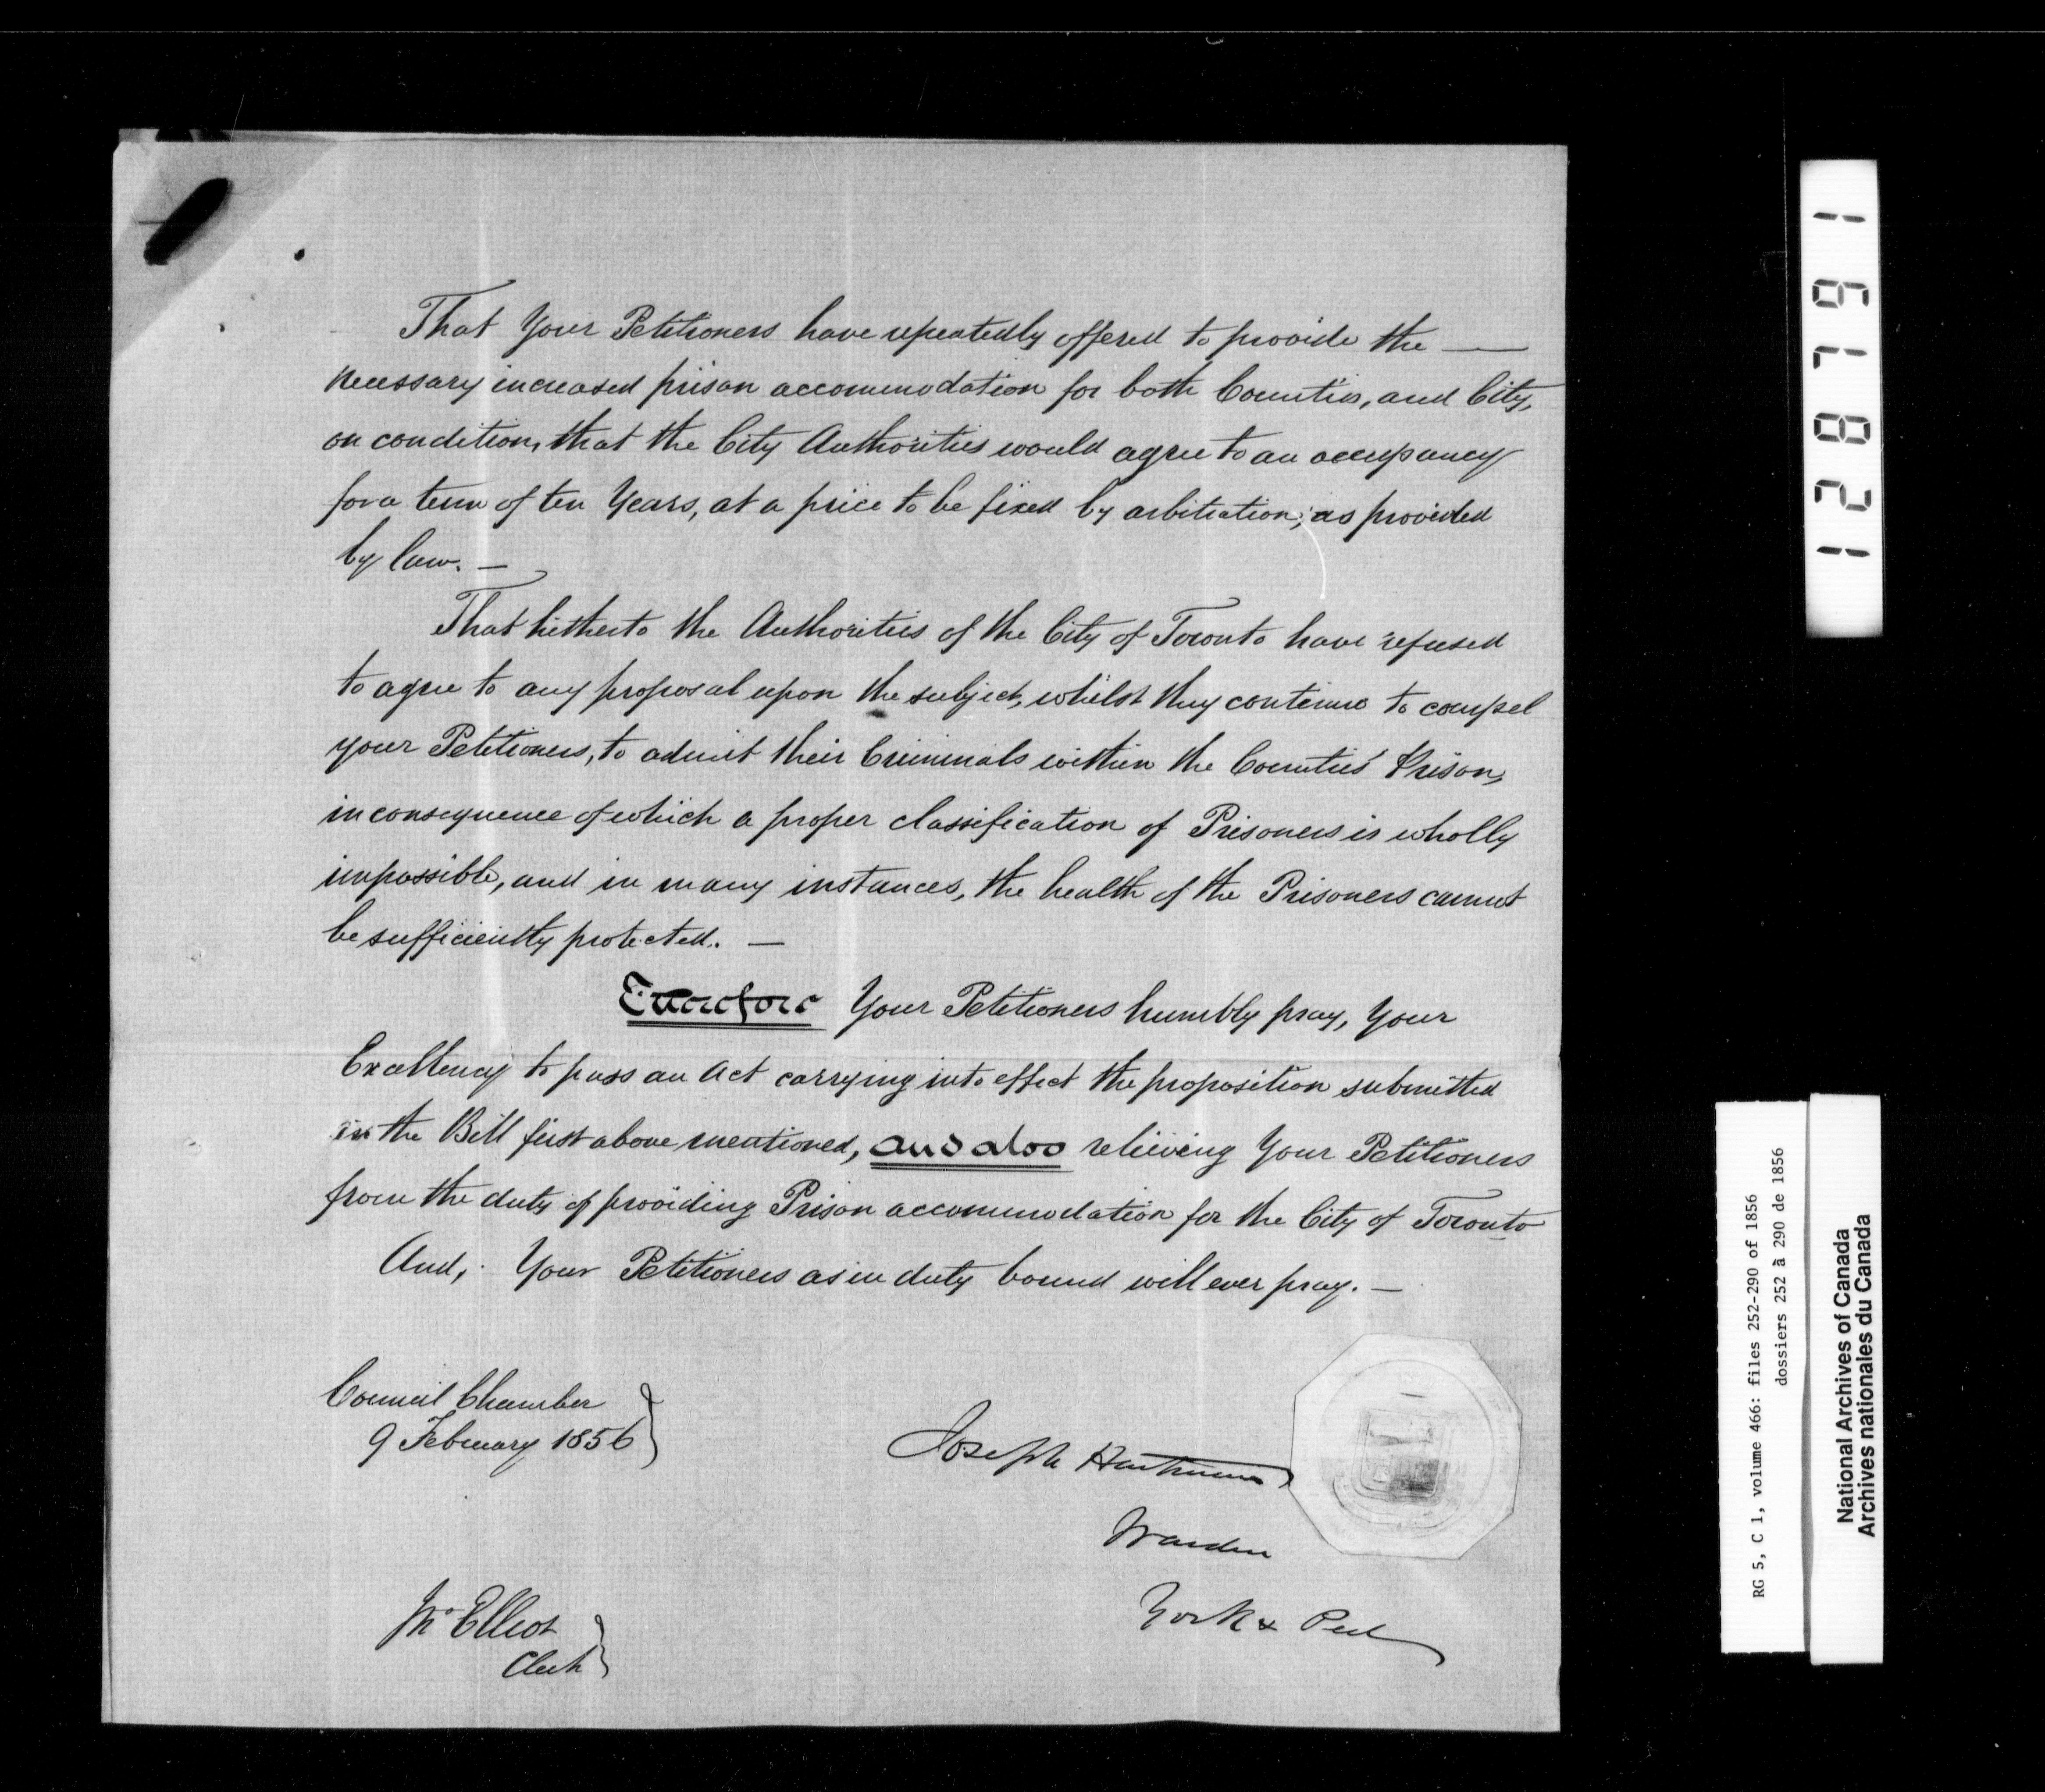 That Your Petitioners have repeatedly offered to provide the —
necessary increased prison accommodation for both Counties, and City,
on condition, that the City Authorities would agree to an occupancy
for a term of ten Years, at a price to be fixed by arbitration, as provided
by law. —
That hitherto the Authorities of the City of Toronto have refused
to agree to any proposal upon the subject, whilst they continue to compel
your Petitioners, to admit their Criminals within the Counties' Prison,
in consequence of which a proper classification of Prisoners is wholly
impossible, and in many instances, the health of the Prisoners cannot
be sufficiently protected. —
Therefore Your Petitioners humbly pray, Your
Excellency to pass an Act carrying into effect the proposition submitted
in the Bill first above mentioned, and also relieving Your Petitioners
from the duty of providing Prison accommodation for the City of Toronto
And, Your Petitioners as in duty bound will ever pray. —
Council Chamber
9 February 1856
Joseph Hartman
Warden
York & Peel
Jno Elliot
Clerk
128791
RG 5, C 1, volume 466: files 252-290 of 1856
dossiers 252 à 290 de 1856
National Archives of Canada
Archives nationales du Canada